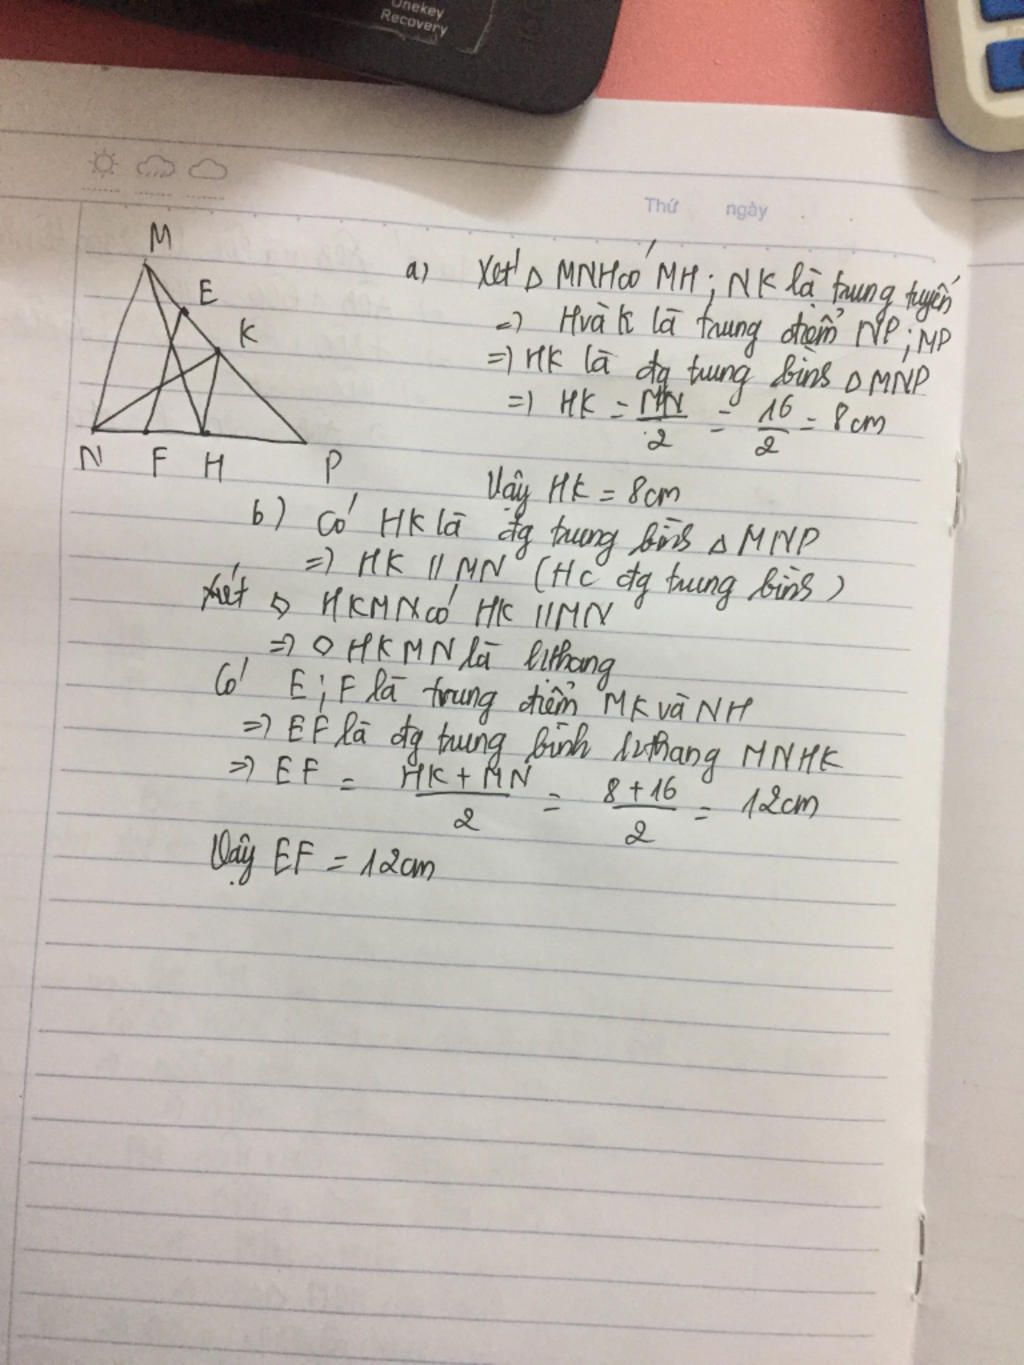 Onekey
Recovery
Thứ ngày
M
E
K
N F H P
a) Xét Δ MNH có MH ; NK là trung tuyến
=> H và K là trung điểm NP ; MP
=> HK là đg trung bình Δ MNP
=> HK = MN/2 = 16/2 = 8cm
Vậy HK = 8cm
b) Có HK là đg trung bình Δ MNP
=> HK // MN (HC đg trung bình)
Xét ◇ HKMN có HK // MN
=> ◇ HKMN là hthang
Có E ; F là trung điểm MK và NH
=> EF là đg trung bình hthang MNHK
=> EF = HK + MN/2 = 8 + 16/2 = 12cm
Vậy EF = 12cm